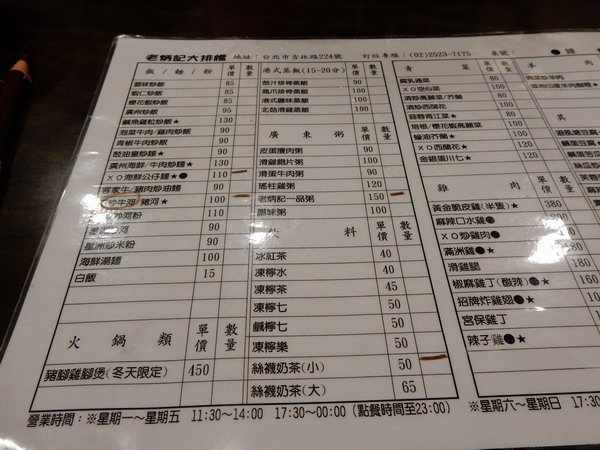 老炳記大排檔 地址：台北市吉林路224號 訂位專線：(02)2523-7175 桌號：
飯/麵/粉 單價 數量
臘味炒飯 85
蝦仁炒飯 85
櫻花蝦炒飯 90
廣州炒飯 90
鹹魚雞粒炒飯★ 130
泡菜牛肉/雞肉炒飯 90
青椒牛肉炒麵 90
豉油皇炒麵 90
廣州海鮮/牛肉炒麵★ 130
XO海鮮公仔麵●★ 110
客家牛/豬肉炒油麵 90
炒牛河/豬河★ 100
炒河粉 110
河 90
星洲炒米粉 90
海鮮湯麵 100
白飯 15
火鍋類 單價 數量
豬腳雞腳煲(冬天限定) 450
港式蒸飯(15-20分) 單價 數量
豉汁排骨蒸飯 90
鳳爪排骨蒸飯 90
港式臘味蒸飯 90
北菇滑雞蒸飯 90
廣東粥 單價 數量
皮蛋瘦肉粥 90
滑雞鮑片粥 100
滑蛋牛肉粥 90
瑤柱雞粥 120
老炳記一品粥 150
臘味粥 100
飲料 單價 數量
冰紅茶 40
凍檸水 40
凍檸茶 45
凍檸七 50
鹹檸七 50
凍檸樂 50
絲襪奶茶(小) 50
絲襪奶茶(大) 65
青菜 單價 數量
腐乳通菜 100
XO甜心菜 100
清炒高麗菜/芥蘭
清炒西蘭花
蒜蓉青江菜★
培根/櫻花蝦高麗菜
蠔油芥蘭
XO西蘭花★
金銀蛋川七★
雞肉 單價 數量
黃金脆皮雞(半隻)★ 380
麻辣口水雞● 90
XO炒雞肉●
滿洲雞● 180
滑雞腿 180
椒麻雞丁(酸辣)●★ 160
招牌炸雞翅●★ 100
宮保雞丁
辣子雞●★
● 辣 ★
羊
異
營業時間：※星期一～星期五 11:30～14:00 17:30～00:00 (點餐時間至23:00) ※星期六～星期日 17:30